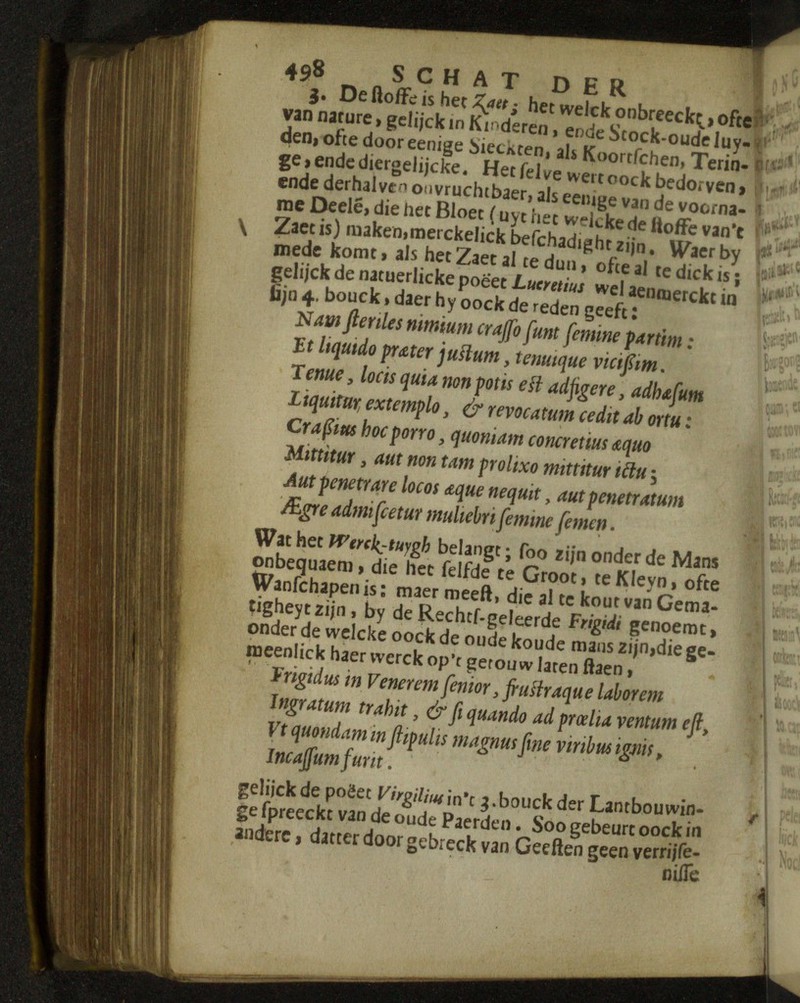 498 SCHAT DER
3. De stoffe is het Zaet; het welck onbreeckt, ofte
van nature, gelijck in Kinderen, ende Stock-oude luy-
den, ofte door eenige Sieckten, als Koortschen, Terin-
ge, ende diergelijcke. Het selve wert oock bedorven,
ende derhalven onvruchtbaer, als eenige van de voorna-
me Deelē, die het Bloet (uyt het welcke de stoffe van't
Zaet is) maken, merckelick beschadight zijn. Waer by
mede komt, als het Zaet al te dun, ofte al te dick is;
gelijck de natuerlicke poëet Lucretius wel aenmerckt in
sijn 4. bouck, daer hy oock de reden geeft:
Nam steriles nimium crasso sunt semine partim:
Et liquido præter justum, tenuique vicissim.
Tenue, locis quia non potis est adfigere, adhæsum
Liquitur extemplo, & revocatum cedit ab ortu:
Crassius hoc porro, quoniam concretius æquo
Mittitur, aut non tam prolixo mittitur ictu;
Aut penetrare locos æque nequit, aut penetratum
Ægre admiscetur muliebri semine semen.
Wat het Werck-tuygh belangt; soo zijn onder de Mans
onbequaem, die het selfde te Groot, te Kleyn, ofte
Wanschapen is: maer meest, die al te kout van Gema-
tigheyt zijn, by de Rechtf-geleerde Frigidi genoemt,
onder de welcke oock de oude koude mans zijn, die ge-
meenlick haer werck op't getouw laten staen,
Frigidus in Venerem senior, frustraque laborem
Ingratum trahit, & si quando ad prœlia ventum est,
Vt quondam in stipulis magnus sine viribus ignis,
Incassum furit.
gelijck de poëet Virgilius in't 3. bouck der Lantbouwin-
ge spreeckt van de oude Paerden. Soo gebeurt oock in
andere, datter door gebreck van Geesten geen verrijse-
nisse